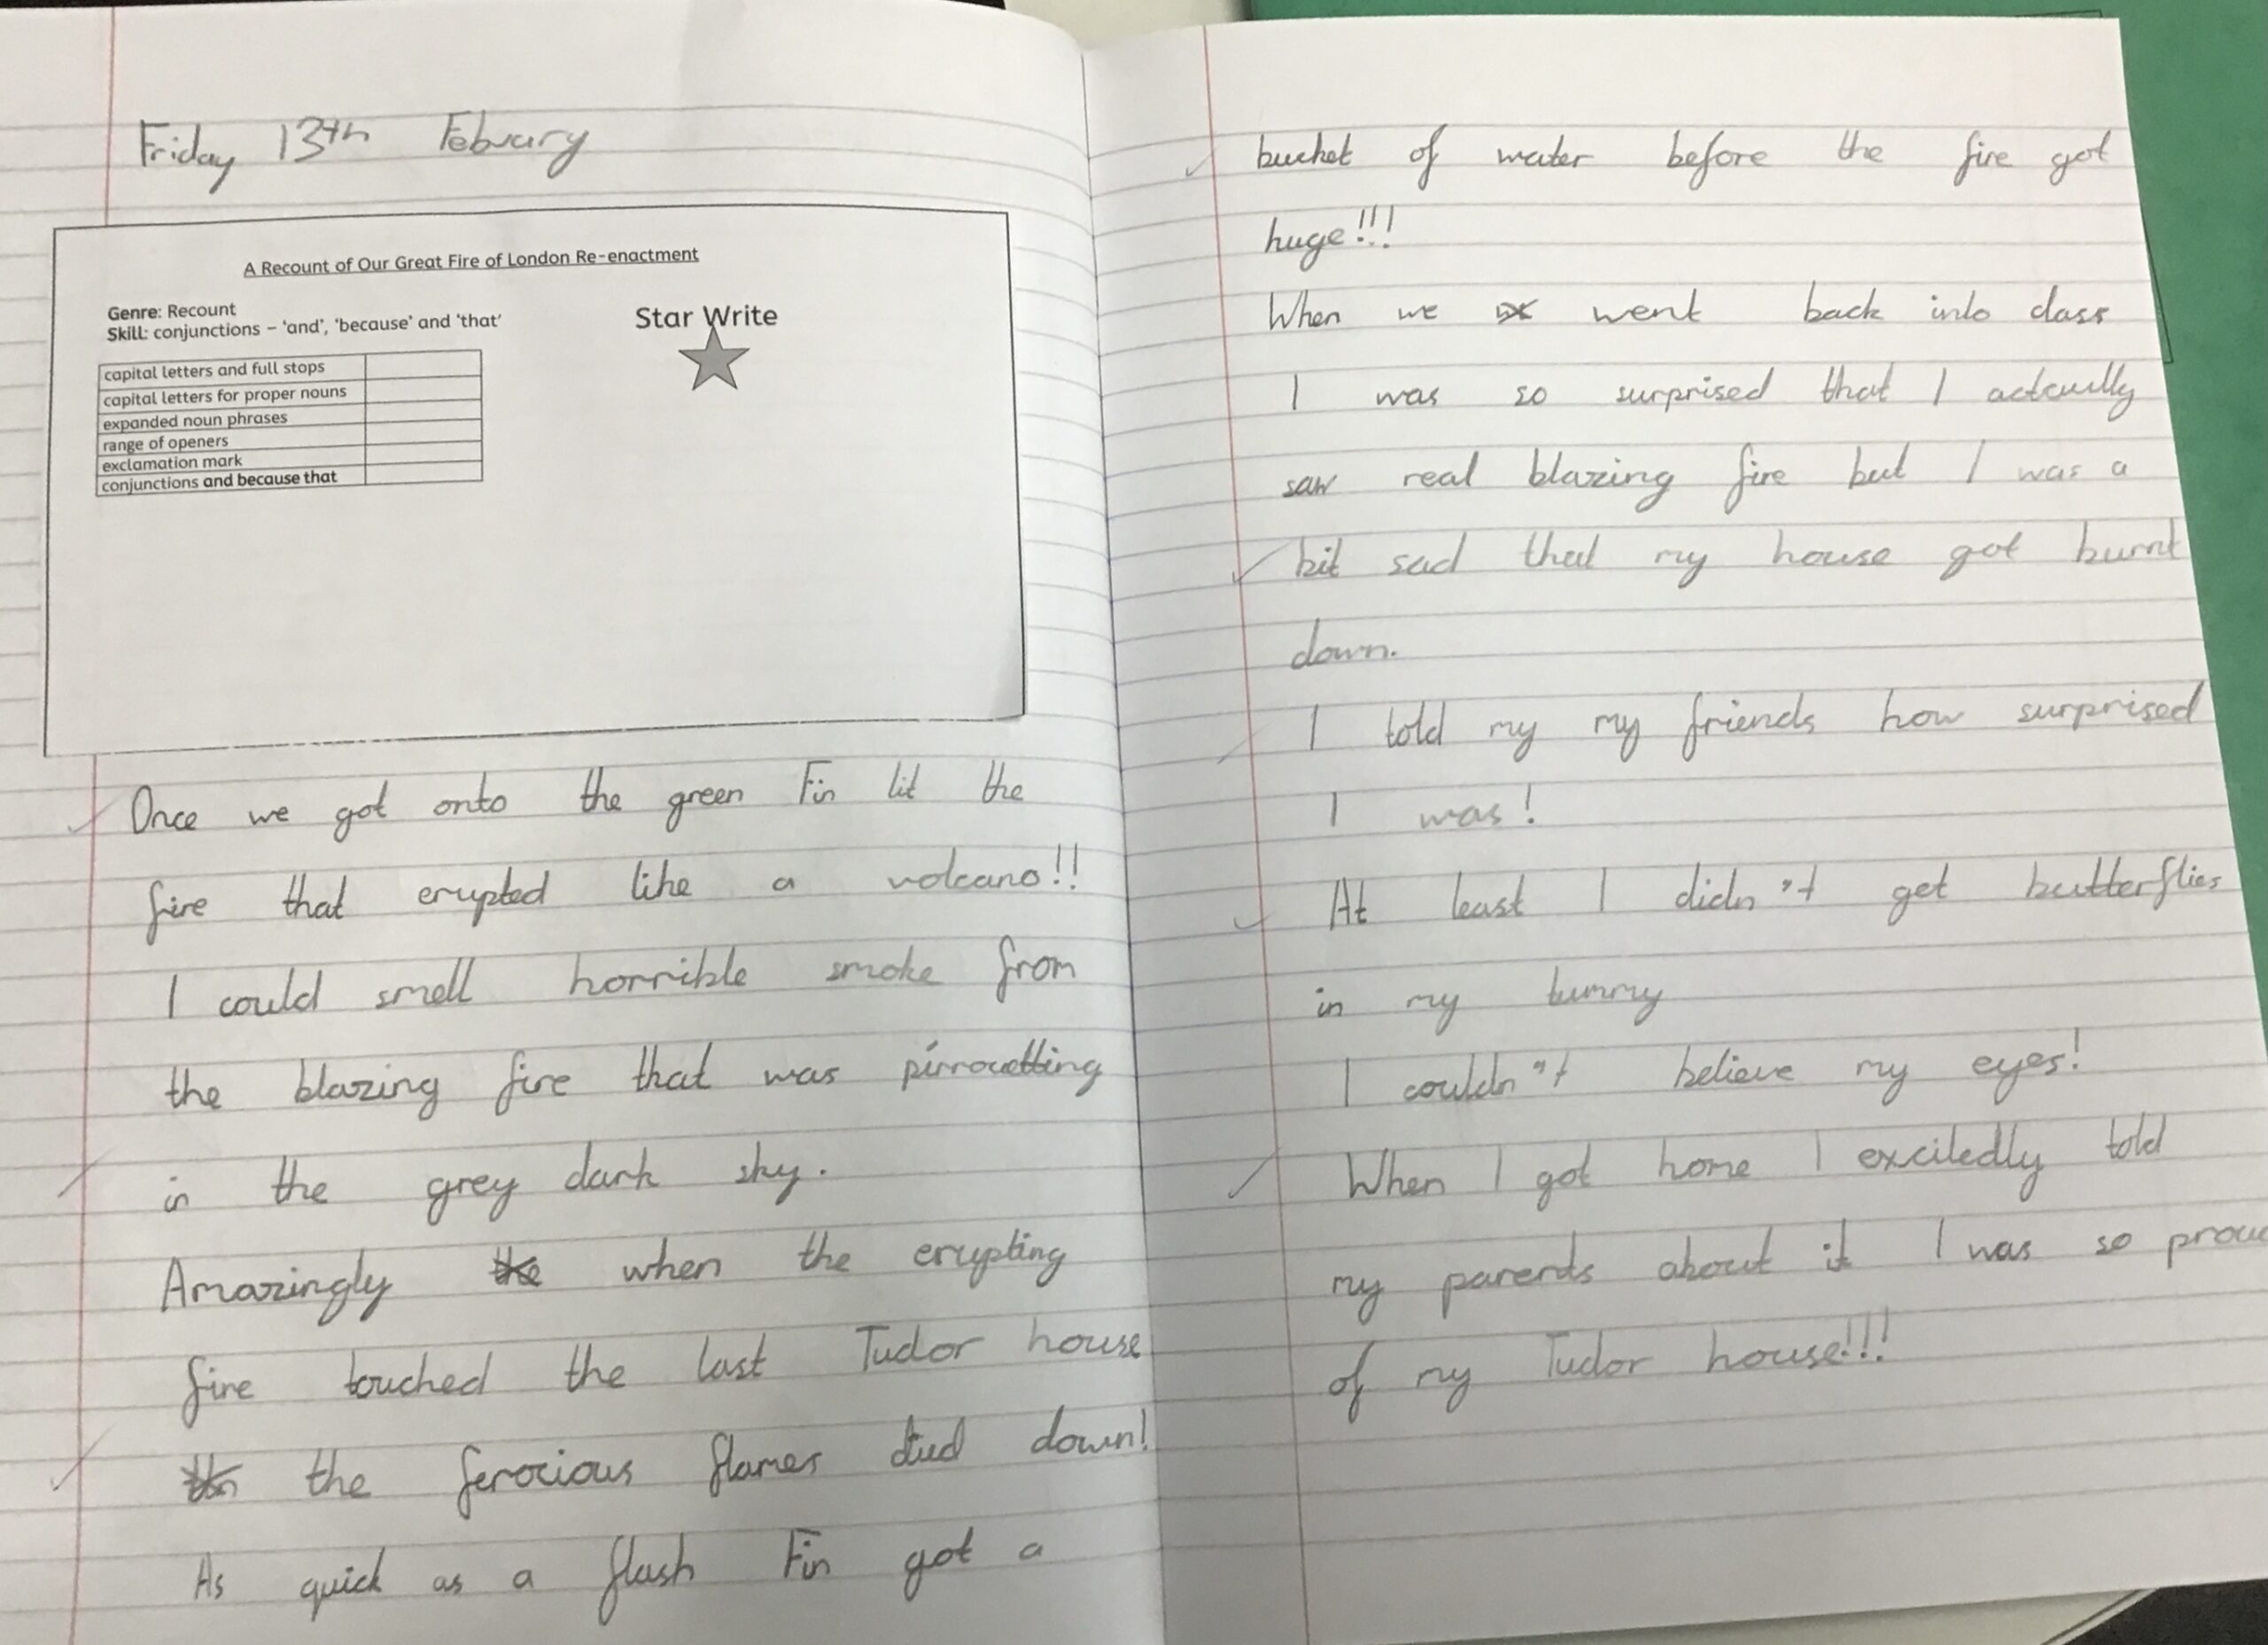 Friday 13th Febuary
A Recount of Our Great Fire of London Re-enactment
Genre: Recount
Skill: conjunctions – 'and', 'because' and 'that'
Star Write
capital letters and full stops
capital letters for proper nouns
expanded noun phrases
range of openers
exclamation mark
conjunctions and because that
Once we got onto the green Fin lit the
fire that erupted like a volcano!!
I could smell horrible smoke from
the blazing fire that was pirrouetting
in the grey dark sky.
Amazingly the when the erupting
fire touched the last Tudor house
the ferocious flames died down!
As quick as a flash Fin got a
bucket of water before the fire got
huge!!!
When we went back into class
I was so surprised that I actcully
saw real blazing fire but I was a
bit sad that my house got burnt
down.
I told my my friends how surprised
I was!
At least I didn"t get butterflies
in my tummy
I couldn"t believe my eyes!
When I got home I excitedly told
my parents about it I was so proud
of my Tudor house!!!